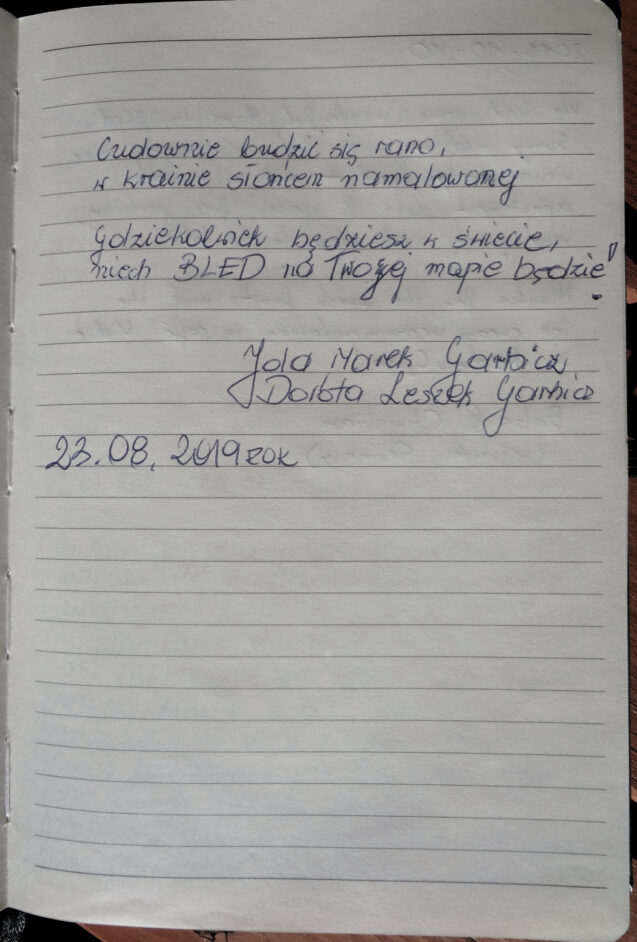 Cudownie budzić się rano,
w krainie słońcem namalowanej
Gdziekolwiek będziesz w świecie,
niech BLED na Twojej mapie będzie!
Jola Marek Garbicz
Dorota Leszek Garbicz
23.08.2019 rok